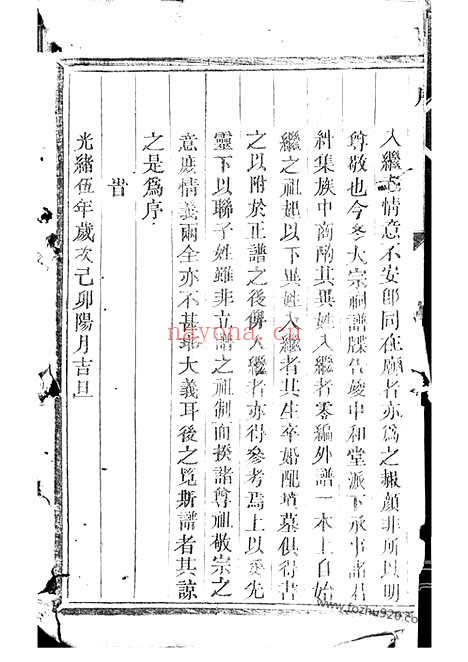 入繼者情意不安郎同在廟者亦爲之赧顔非所以明
尊敬也今冬大宗祠譜牒告竣中和堂派下承事諸君
糾集族中商酌其異姓入繼者零編外譜一本上自始
繼之祖妣以下異姓入繼者其生卒婚配墳墓俱得書
之以附於正譜之後俾入繼者亦得參考焉上以妥先
靈下以聯子姓雖非立譜之祖制而揆諸尊祖敬宗之
意庻情義兩全亦不甚乖大義耳後之覧斯譜者其諒
之是爲序
旹
光緒伍年歲次己卯陽月吉旦
nayona.cn
www.fozhu920.com